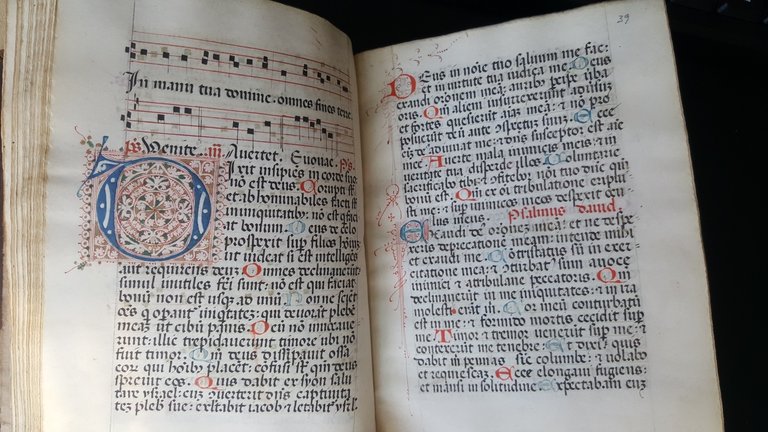 In manu tua domine: omnes fines terre.
ps Venite. Avertet. Evovae. ps
Dixit insipiens in corde suo:
nō est deus. Corrupti st̄
et abhominabiles facti st̄
in iniquitatib: nō est q faciat
bonum. Deus de celo
prospexit sup filios hoīuz
ut videat si est intelligēs
aut requirens deuz. Omnes declinauerūt
simul inutiles facti sunt: nō est qui faciat
bonū non est usqz ad unū. Nonne scient
oēs q operant iniqtatez: qui deuorāt plebē
meaz ut cibū panis. Deū nō inuocaue
runt: illic trepidauerūt timore ubi nō
fuit timor. Qm̄ deus dissipauit ossa
eor qui hoībz placēt: confusi st̄ qm̄ deus
spreuit eos. Quis dabit ex syon salu
tare israel: cuz cōuerterit dns captiuita
tez pleb sue: exltabit iacob & letabit isrl.
39
Deus in noīe tuo saluum me fac:
et in uirtute tua iudica me. Deus
exaudi orōnem meā: auribz percipe uba
oris. Qm̄ alieni insurrexerūt aduersuz
et fortes quesierūt aiaz meā: & nō pro
posuerūt deū ante ɔspectū suuz. Ecce
ei de adiuuat me: & dns susceptor est aīe
me. Auerte mala inimicis meis: & in
ueritate tua disperde illos. Voluntarie
sacrificabo tibi: & ɔfitebor noī tuo dne qm̄
bonū est. Qm̄ ex oī tribulatione eripui
sti me: & sup inimicos meos despexit ocu
lus meus. Psalmus dauid.
Exaudi de orōnez meaz: et ne despe
xeris deprecatione meam: intende mihi
et exaudi me. Cōtristatus sū in exer
citatione mea: & ɔturbat suz a uoce
inimici & a tribulatione peccatoris. Qm̄
declinauerūt in me iniquitates: & in ira
molesti erāt m. Cor meū conturbatū
est in me: & formido mortis cecidit sup
me. Timor & tremor uenerūt sup me: &
contexerūt me tenebre. Et dixi: quis
dabit m pennas sicut columbe: & uolabo
et requiescaz. Ecce elongaui fugiens:
et mansi in solitudine. Expectabam euz